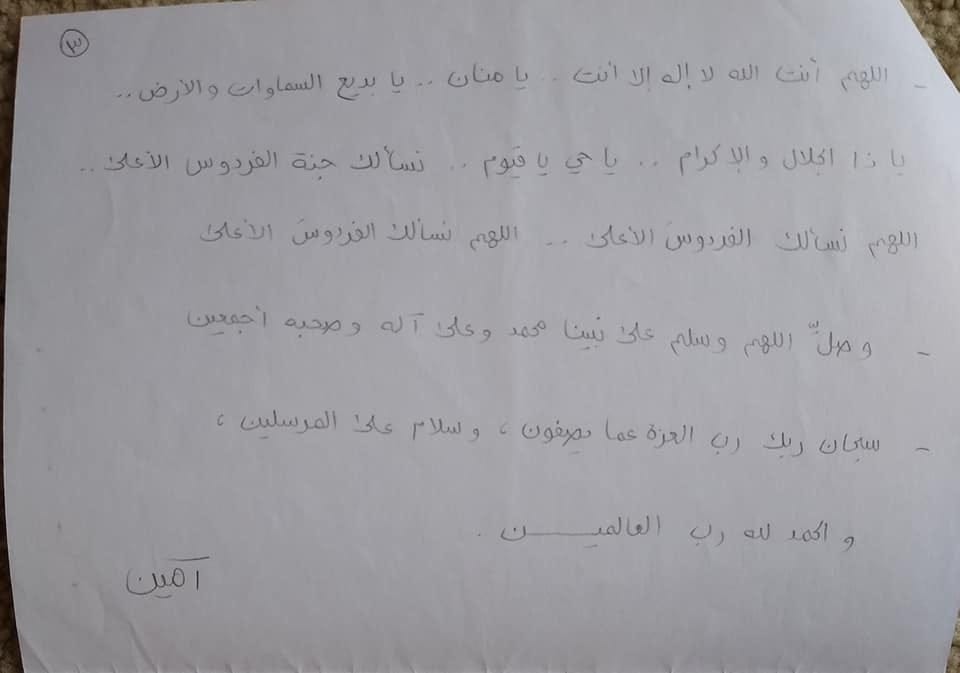 ٣
- اللهم أنت الله لا إله إلا أنت .. يا منان .. يا بديع السماوات والأرض ..
يا ذا الجلال والإكرام .. يا حي يا قيوم .. نسألك جنة الفردوس الأعلى ..
اللهم نسألك الفردوسَ الأعلى .. اللهم نسألك الفردوسَ الأعلى
- وصلِّ اللهم وسلم على نبينا محمد وعلى آله وصحبه أجمعين
- سبحان ربك رب العزة عما يصفون ، وسلام على المرسلين ،
والحمد لله رب العالميـــــن .
آمين